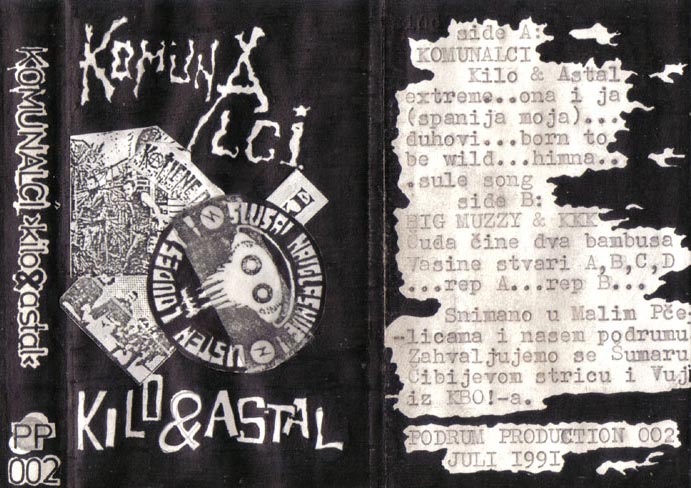 KOMUNALCI "kilo&astal"
PP
002
KOMUNA
LCI
SLUŠAJ NAJGLASNIJE!
LISTEN LOUDEST!
KILO
&ASTAL
side A:
KOMUNALCI
Kilo & Astal
extreme..ona i ja
(spanija moja)...
duhovi...born to
be wild...himna..
.sule song
side B:
BIG MUZZY & KKK
Čuda čine dva bambusa
Vasine stvari A,B,C,D
...rep A...rep B...
Snimano u Malim Pče-
-licama i nasem podrumu
Zahvaljujemo se Šumaru
Čibijevom stricu i Vuji
iz KBO!-a.
PODRUM PRODUCTION 002
JULI 1991